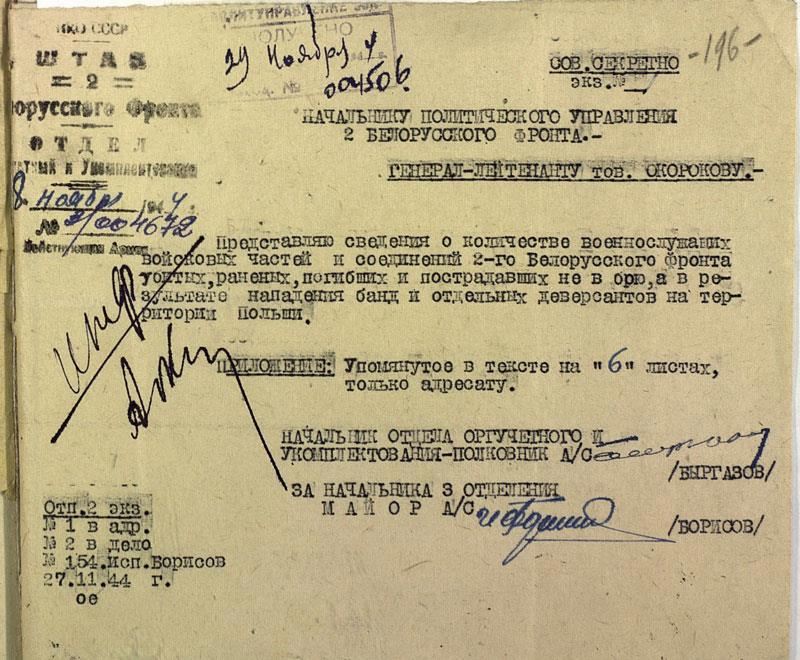 НКО СССР
ШТАБ
= 2 =
Белорусского Фронта
ОТДЕЛ
и Укомплектования
8 ноября 1944
№ 2/004672
Действующая Армия
ПОЛИТУПРАВЛЕНИЕ
ПОЛУЧЕНО
29 Ноября 4
004506
-196-
СОВ.СЕКРЕТНО
экз.№ 1
НАЧАЛЬНИКУ ПОЛИТИЧЕСКОГО УПРАВЛЕНИЯ
2 БЕЛОРУССКОГО ФРОНТА.-
ГЕНЕРАЛ-ЛЕЙТЕНАНТУ тов. ОКОРОКОВУ.-
Представляю сведения о количестве военнослужащих
войсковых частей и соединений 2-го Белорусского фронта
убитых,раненых,погибших и пострадавших не в бою,а в ре-
зультате нападения банд и отдельных деверсантов на тер-
ритории Польши.
ПРИЛОЖЕНИЕ: Упомянутое в тексте на "6" листах,
только адресату.
НАЧАЛЬНИК ОТДЕЛА ОРГУЧЕТНОГО И
УКОМПЛЕКТОВАНИЯ-ПОЛКОВНИК А/С
/БЫРГАЗОВ/
ЗА НАЧАЛЬНИКА 3 ОТДЕЛЕНИЯ
МАЙОР А/С
/БОРИСОВ/
Отп.2 экз.
№ 1 в адр.
№ 2 в дело
№ 154.исп.Борисов
27.11.44 г.
ое